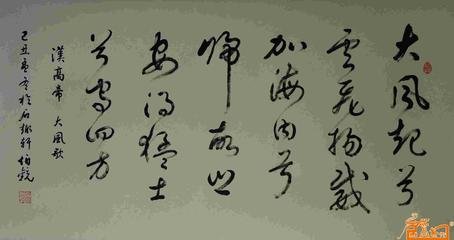 大風起兮
雲飛揚威
加海内兮
歸故鄉
安得猛士
兮守四方
漢高帝 大風歌
己丑 於石 軒